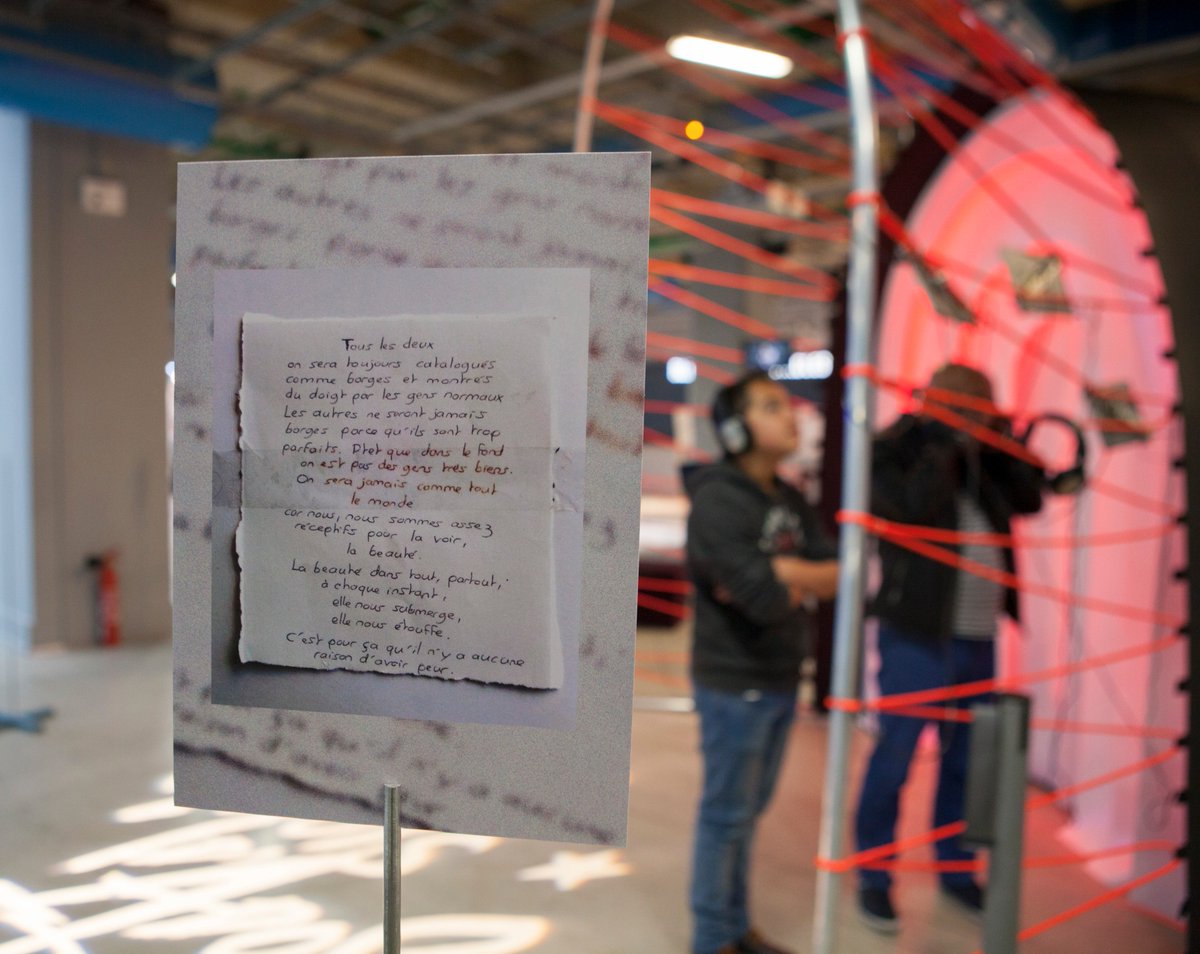 Tous les deux
on sera toujours catalogués
comme barges et montrés
du doigt par les gens normaux
Les autres ne seront jamais
barges parce qu'ils sont trop
parfaits. Ptet que dans le fond
on est pas des gens très biens.
On sera jamais comme tout
le monde
car nous, nous sommes assez
réceptifs pour la voir,
la beauté.
La beauté dans tout, partout,
à chaque instant,
elle nous submerge,
elle nous étouffe.
C'est pour ça qu'il n'y a aucune
raison d'avoir peur.